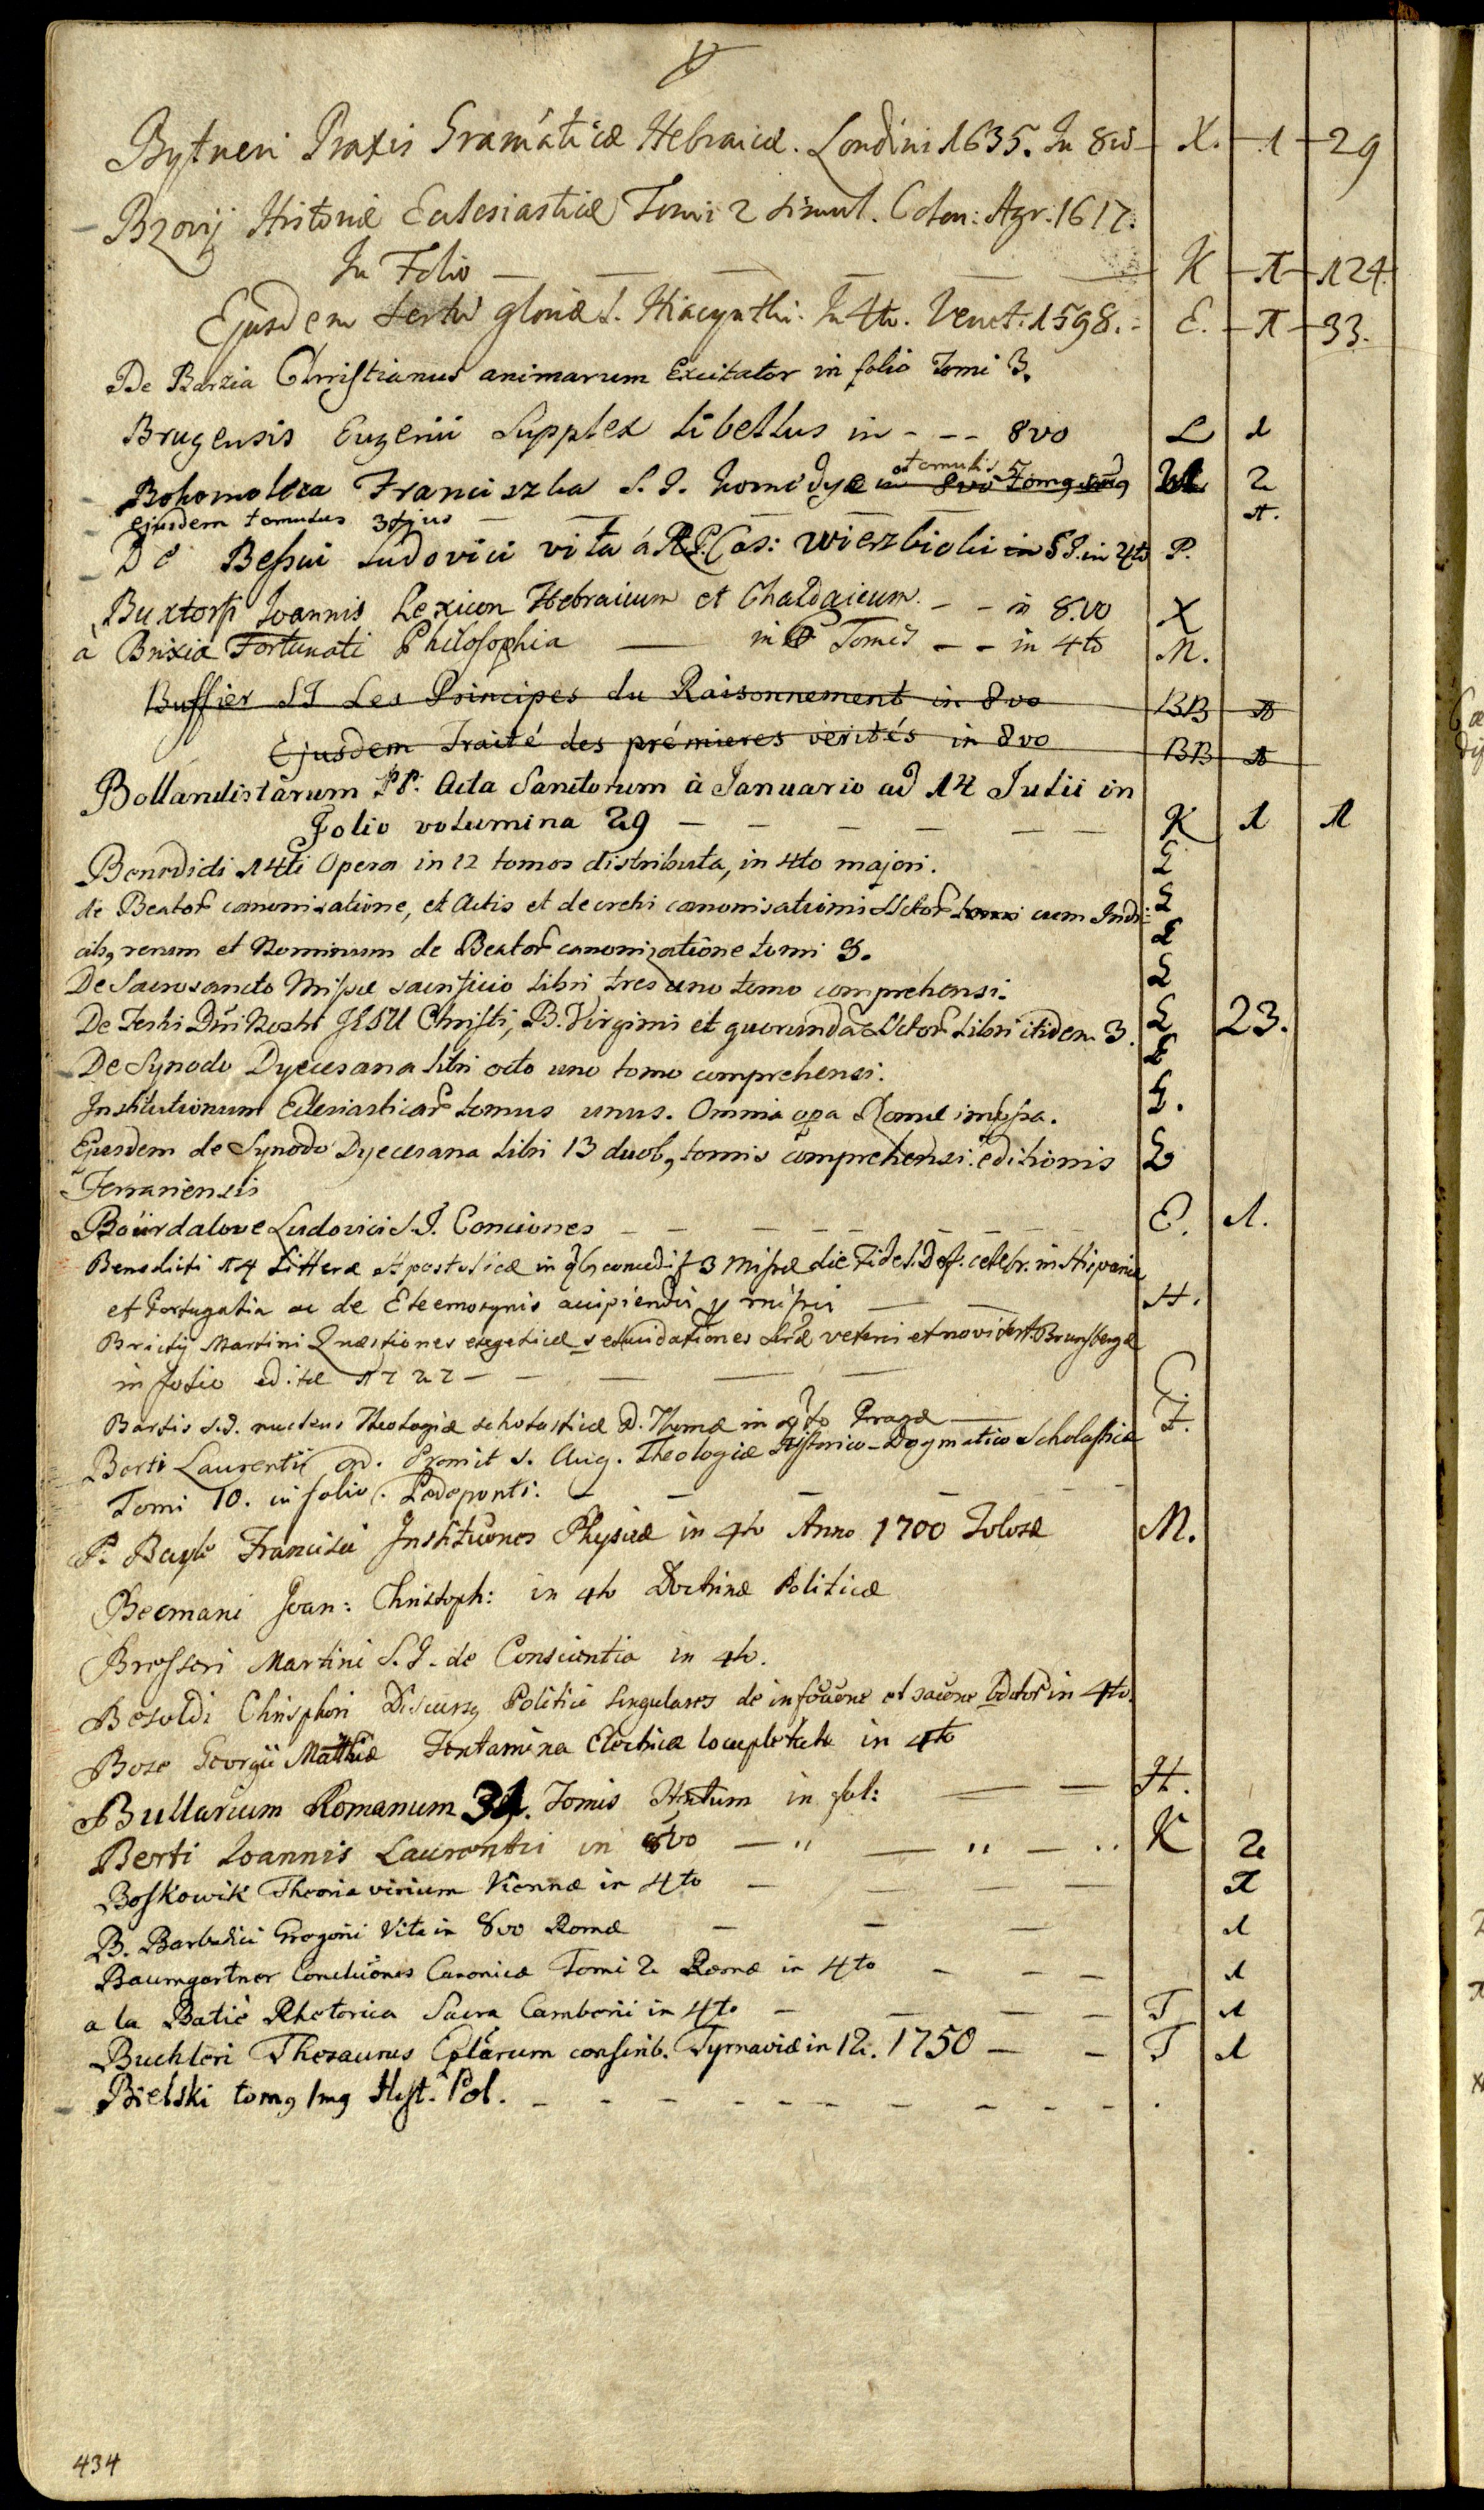 Bytneri Praxis Gram̃aticæ Hebraicæ. Londini 1635. In 8vo X. 1 29
Bzovij Historiæ Ecclesiasticæ Tomi 2 simul. Colon: Agr. 1617.
In Folio K 1 124.
Ejusdem Sertũ gloriæ S. Hiacynthi. In 4to. Venet. 1598. E. 1 33.
De Barzia Christianus animarum Excitator in folio Tomi 3.
Brugensis Eugenii Supplex libellus in - - - 8vo L 1
Bohomoleca Franciszka S. J. komedye tomulis 5 in 8vo Tomg 2
ejusdem tomulus 3tjus 1.
De Beſsui Ludovici vita á R.P. Cas: Wierzbicki S J. in 4to P.
Buxtorfi Joannis Lexicon Hebraicum et Chaldaicum. - - in 8.vo X
à Brixia Fortunati Philosophia in Tomis - - in 4to M.
Buffier SJ Les Principes du Raisonnement in 8vo BB 1
Ejusdem Traité des prémieres verités in 8vo BB 1
Bollandistarum PP. Acta Sanctorum à Januario ad 14 Julii in
Folio volumina 29 K 1 1
Benedicti 14ti Opera in 12 tomos distributa, in 4to majori. L
de Beator canonisatione, et Actis et decretis canonisationis SSctor cum Indi= L
cib9 rerum et Nominum de Beator canonizatione tomi 8. L
De Sacrosancto Miſsæ sacrificio libri tres uno tomo comprehensi. L
De Festis Dñi Nostri JESU Christi, B. Virginis et quorundã SSctor Libri itidem 3. L 23.
De Synodo Dyecesana libri octo uno tomo comprehensi. L
Institutionum Ecclesiasticar tomus unus. Omnia opa Romæ impſsa. L.
Ejusdem de Synodo Dyecesana libri 13 duob9 tomis comprehensi. editionis L
Ferrariensis
Boürdaloue Ludovici S. J. Conciones E. 1.
Benedicti 14 Litteræ Apostolicæ in qb9 concedit 3 Miſsæ die Fidel. Def. celebr. in Hispania
et Portugalia ac de Eleemosynis accipiendis p miſsis H.
Brictij Martini Quæstiones exegeticæ s elucidationes Scræ veteris et novi test. Brunsbergæ
in folio editæ 1727 G.
Bartis S.J. nucleus Theologiæ scholasticæ D. Thomæ in 4to Pragæ F.
Berti Laurentii Ord. Eremit S. Aug. Theologiæ Historico-Dogmatico Scholasticæ
Tomi 10. in folio. Pedeponti.
P. Bayle Francisci Institutiones Physicæ in 4to Anno 1700 Tolosæ M.
Becmani Joan: Christoph: in 4to Doctrinæ Politicæ
Bresseri Martini S.J. de Conscientia in 4to.
Besoldi Chrisphori Discursg Politici singulares de in 4to.
Bose Georgii Matthiæ Tentamina Electrica locupletata in 4to
Bullarium Romanum 31. Tomis in fol: H.
Berti Joannis Laurentii in 8vo — " — " — .. K 2
Boskowik Theoria virium Viennæ in 4to 1
B. Barbadici Gregorii Vita in 8vo Romæ 1
Baumgartner Conclusiones Canonicæ Tomi 2 Romæ in 4to 1
a la Batiè Rhetorica Sacra Camberii in 4to T 1
Buchleri Thesaurus Eplarum conscrib. Tyrnaviæ in 12. 1750 T 1
Bielski tomg 1mg Hist. Pol.
434